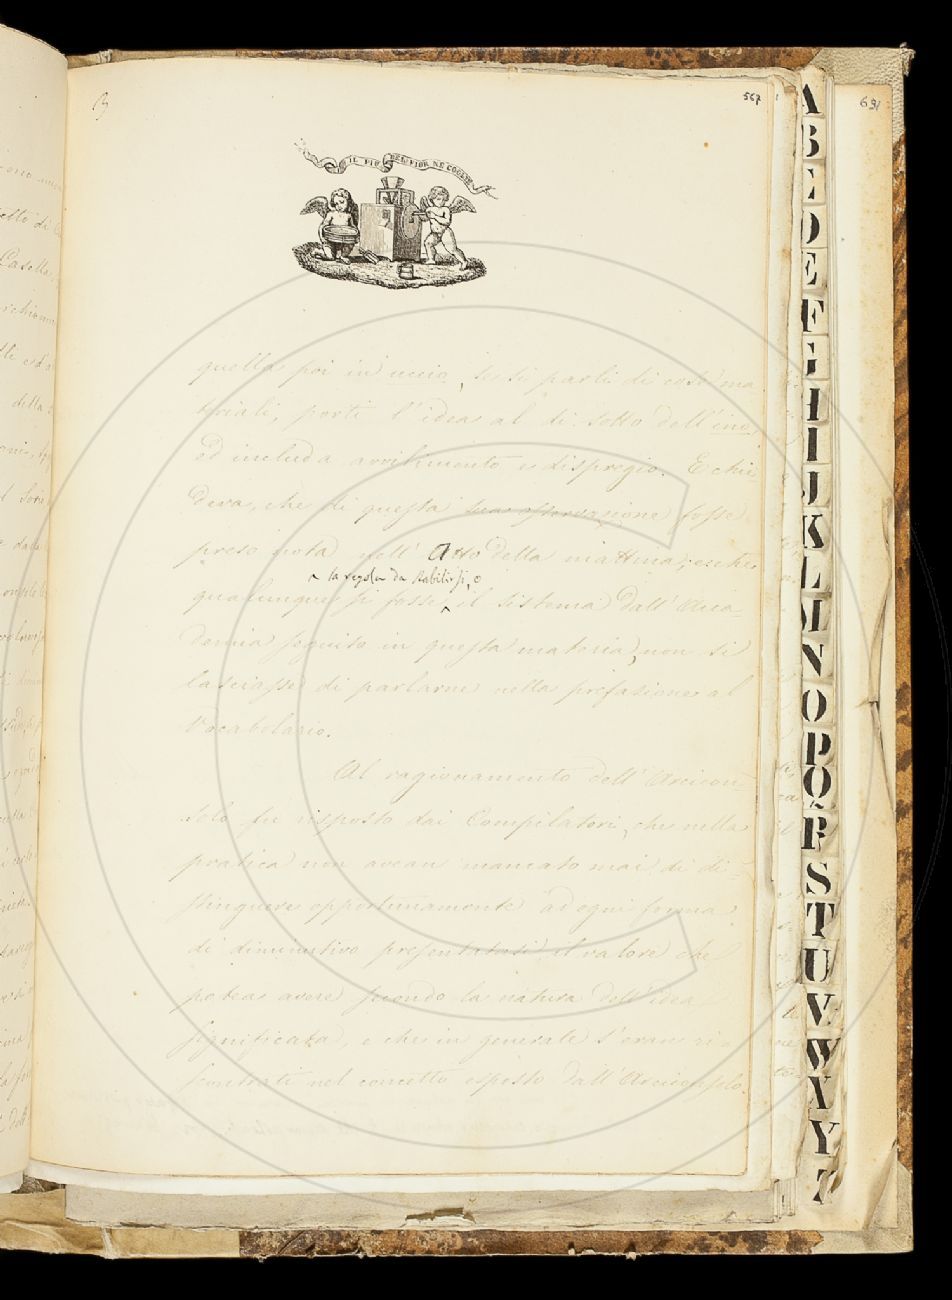 567
691
IL PIÙ BEL FIOR NE COGLIE
quella poi in uccio, se si parli di cose ma
teriali, porti l'idea al di sotto dell'ino,
ed includa avvilimento e dispregio. E chie
deva, che di questa sua osservazione fosse
preso nota nell'Atto della mattina; e che
^ la regola da stabilirsi, o
qualunque si fosse ^ il sistema dall'Acca
demia seguito in questa materia, non si
lasciasse di parlarne nella prefazione al
Vocabolario.
Al ragionamento dell'Arcicon
solo fu risposto dai Compilatori, che nella
pratica non avean mancato mai di di
stinguere opportunamente ad ogni forma
di diminutivo presentatasi il valore che
potea avere secondo la natura dell'idea
significata, e che in generale s'eran ri
scontrati nel concetto esposto dall'Arciconsolo.
A
B
C
D
E
F
G
H
I
J
K
L
M
N
O
P
Q
R
S
T
U
V
W
X
Y
Z